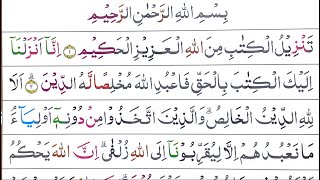 بِسْمِ اللهِ الرَّحْمٰنِ الرَّحِيْمِ
تَنْزِيْلُ الْكِتٰبِ مِنَ اللهِ الْعَزِيْزِ الْحَكِيْمِ ۝١ اِنَّاۤ اَنْزَلْنَاۤ
اِلَيْكَ الْكِتٰبَ بِالْحَقِّ فَاعْبُدِ اللهَ مُخْلِصًا لَّهُ الدِّيْنَ ۝٢ اَلَا
لِلّٰهِ الدِّيْنُ الْخَالِصُ ؕ وَالَّذِيْنَ اتَّخَذُوْا مِنْ دُوْنِهٖۤ اَوْلِيَآءَ ۘ
مَا نَعْبُدُهُمْ اِلَّا لِيُقَرِّبُوْنَاۤ اِلَى اللهِ زُلْفٰى ؕ اِنَّ اللهَ يَحْكُمُ